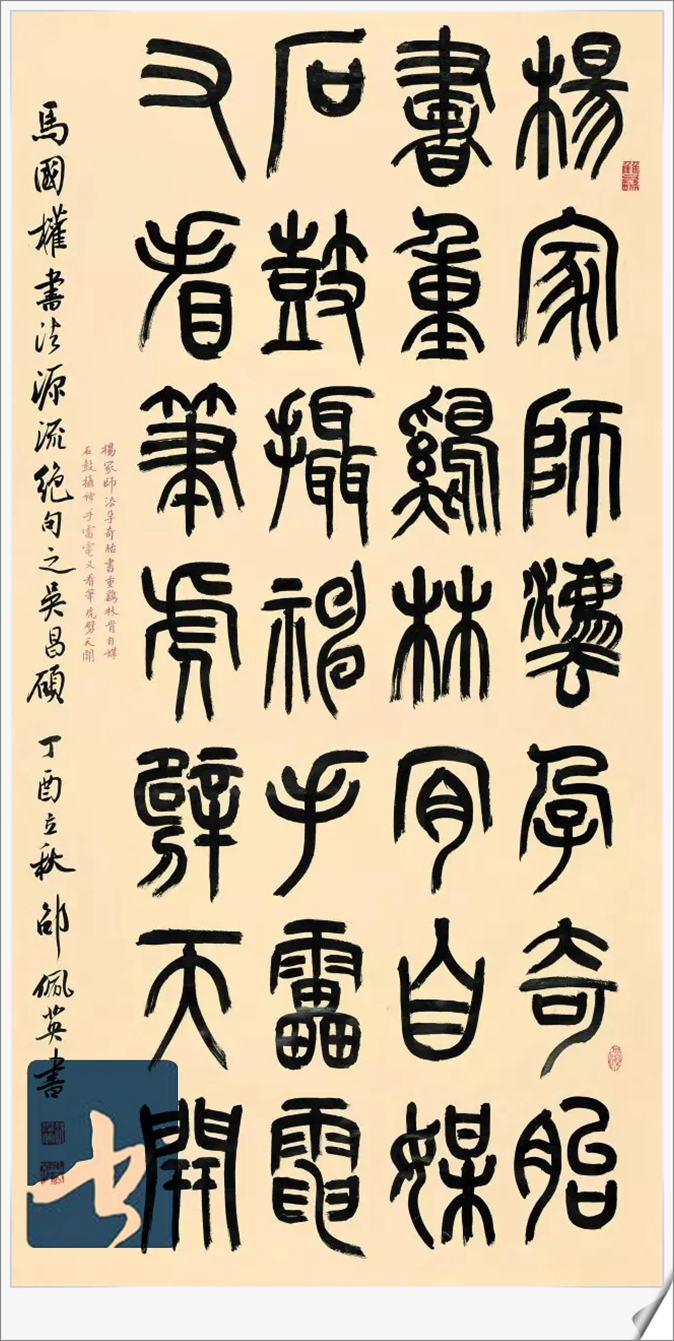 楊家師灋孕奇胎
書重鷄林肎自媒
石鼓攝神手靁電
又看筆虎劈天開
楊家師法孕奇胎書重鷄林肯自媒
石鼓攝神手雷電又看筆虎劈天開
馬國權書法源流絕句之吳昌碩 丁酉立秋 邵佩英書